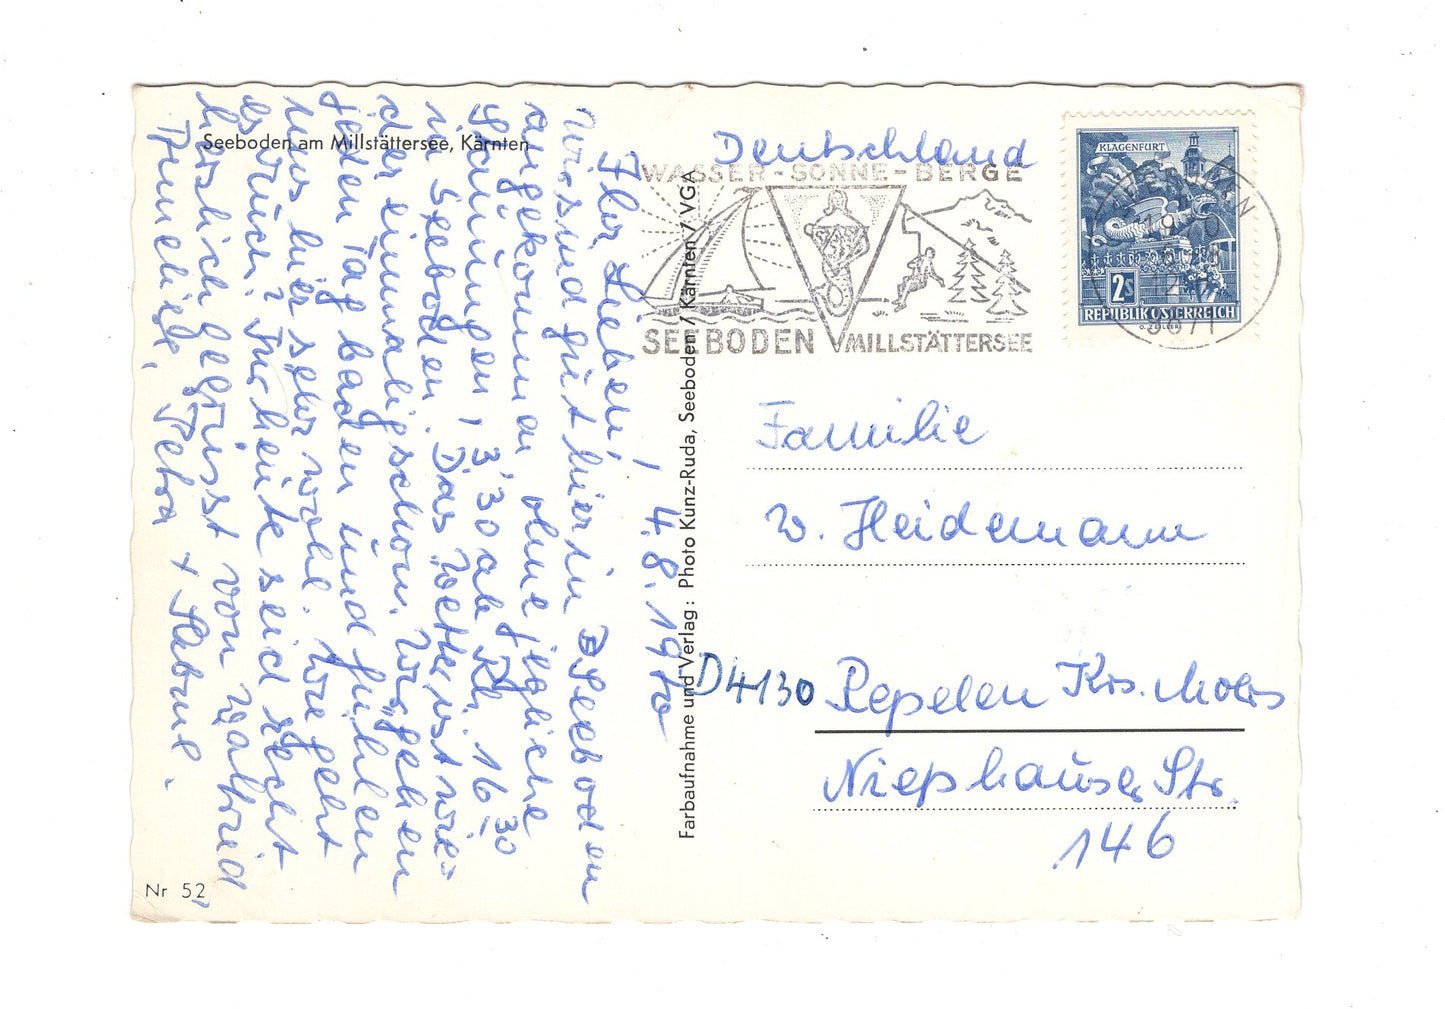 Seeboden am Millstättersee, Kärnten
4.8.1970
Ihr Lieben!
Wir sind gut hier in Seeboden
angekommen, ohne jegliche
Stauungen, 3,30 ab Rh. 16,30
in Seeboden. Das Wetter ist wie=
der einmalig schön. Wir gehen
jeden Tag baden und fühlen
uns hier sehr wohl. Wie geht
es Euch? Für heute seid recht
herzlich gegrüsst von Waltried,
Anneliese, Petra + Sabine.
Nr 52
Farbaufnahme und Verlag: Photo Kunz-Ruda, Seeboden / Kärnten / VGA
Deutschland
WASSER-SONNE-BERGE
SEEBODEN MILLSTÄTTERSEE
KLAGENFURT
2S
REPUBLIK ÖSTERREICH
O. ZEILLER
9871
Familie
W. Heidemann
D4130 Repelen Krs. Moers
Niephauser Str.
146